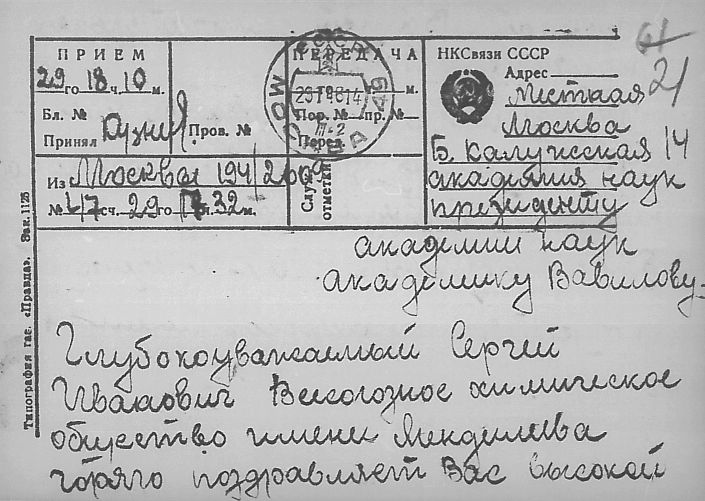 61
21
ПРИЕМ
29го 18ч. 10м.
Бл. №
Принял
Пров. №
ПЕРЕДАЧА
го ч. м.
Пор. № пр. №
Перед.
МОСКВА
Служ. отметки
НКСвязи СССР
Адрес
местная
Москва
Б. Калужская 14
академия наук
президенту
Из Москвы 194/2609
№ 47 сч. 29 го 17 ч. 32 м.
академии наук
академику Вавилову-
Глубокоуважаемый Сергей
Иванович Всесоюзное химическое
общество имени Менделеева
горячо поздравляет Вас высокой
Типография газ. «Правда». Зак. 1125